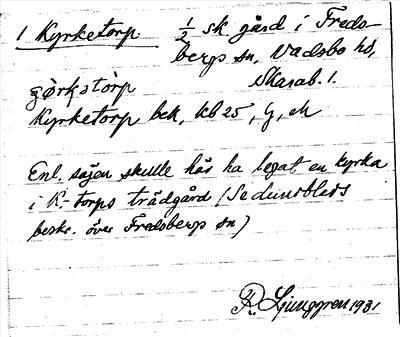 1 Kyrketorp 1/2 sk gård i Freds-
bergs sn, Vadsbo hd,
Skarab. l.
Kyrketorp bek, kb 25, G, eM
Enl. sägen skulle här ha legat en kyrka
i K-torps trädgård (Se
beskr. över Fredsbergs sn)
R. Ljunggren 1931